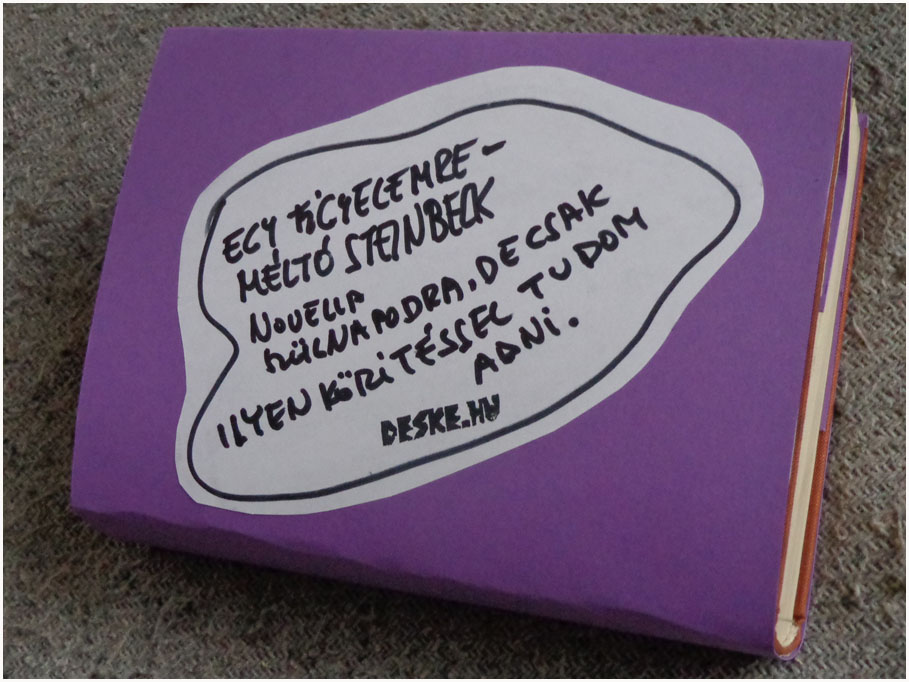 EGY FIGYELEMRE-
MÉLTÓ STEINBECK
NOVELLA
SZÜLNAPODRA, DE CSAK
ILYEN KÖRITÉSSEL TUDOM
ADNI.
DESKE.HU